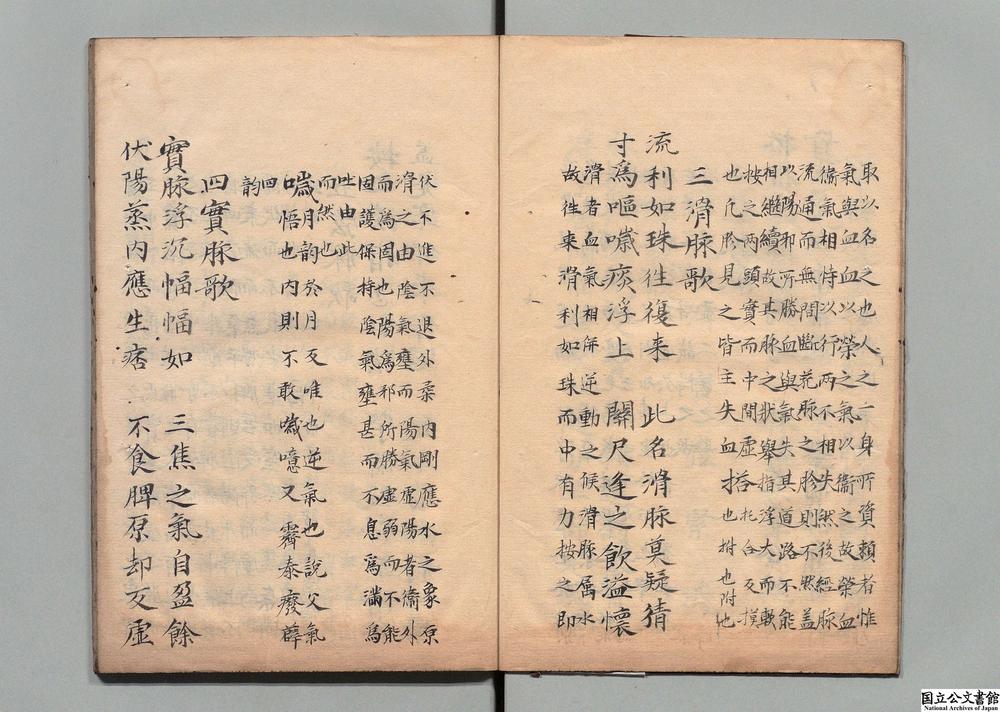 取以名之也人之一身所資賴者惟
氣與血血以榮之氣以衞之故榮血
衞氣相恃以行兩不相失然後經脉
流通而無間斷芤脉之胗則不然蓋
以陽邪所勝血與氣失其道路不能
相繼續故其脉之狀舉指浮大而軟
按之兩頭實而中間虛
也凢胗見之皆主失血㧺托合反摸
也㧺也拊也附也
三滑脉歌
流利如珠徃復來 此名滑脉莫疑猜
寸爲嘔噦痰浮上 關尺逢之飲溢懷
滑者血氣相併逆動之候滑脉属水
故徃来滑利如珠而中有力按之即
伏不進不退外柔内剛應水之象原
滑之由陰氣壅而陽氣虛陽者衞外
而爲固也陽爲邪所勝虛弱而不能
固護保持陰氣壅甚而不息爲滿爲
吐由此
而然也
噦月韵於月反唯也逆氣也說父氣
悟也内則不敢噦噫又霽泰廢薛
四
韵
四實脉歌
實脉浮沉幅幅如 三焦之氣自盈餘
伏陽蒸内應生痞 不食脾原却又虛
国立公文書館
National Archives of Japan